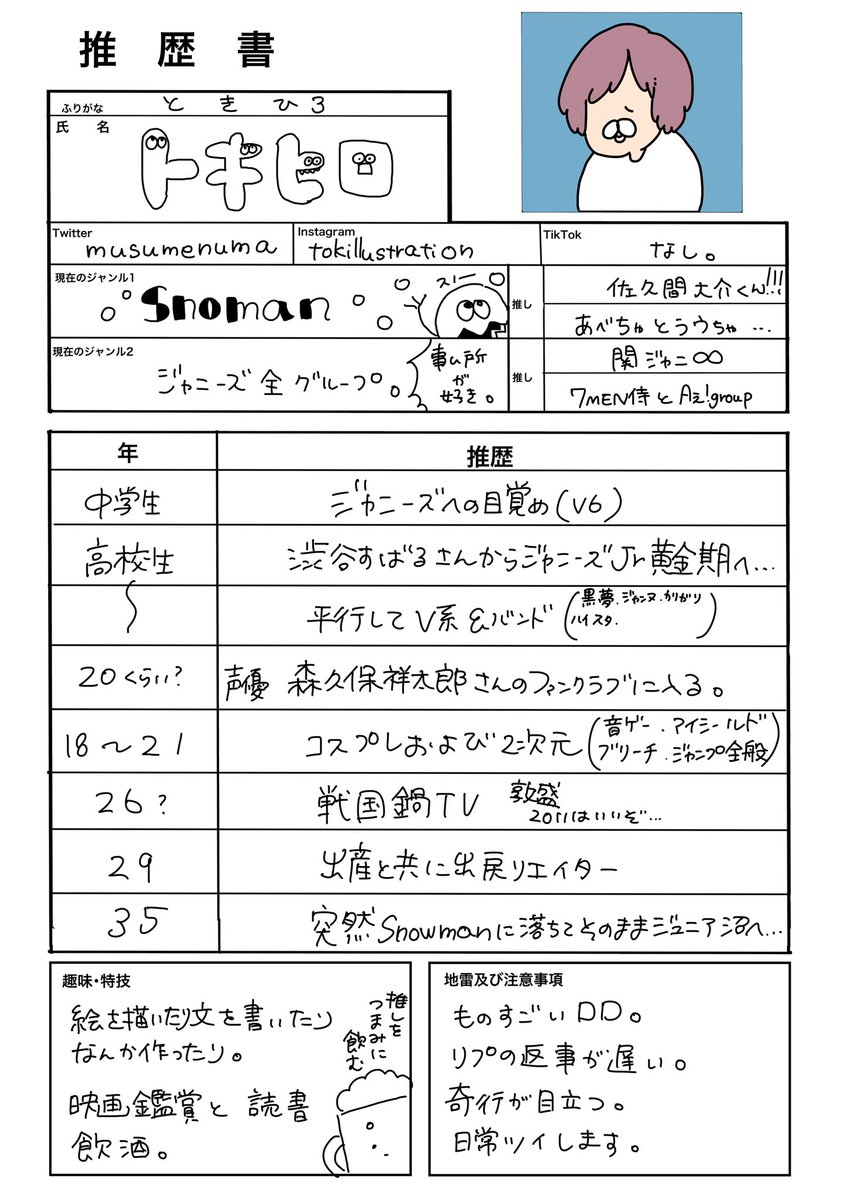 推歴書
ふりがな
ときひろ
氏名
トキヒロ
Twitter
musumenuma
Instagram
tokillustration
TikTok
なし。
現在のジャンル1
Snoman
スノー
推し
佐久間大介くん!!!
あべちゃとラウちゃ…
現在のジャンル2
ジャニーズ全グループ。
事ム所
が
好き。
推し
関ジャニ∞
7MEN侍とAえ!group
年
推歴
中学生
ジャニーズへの目覚め(V6)
高校生
渋谷すばるさんからジャニーズJr黄金期へ…
〜
平行してV系&バンド(黒夢.ジャンヌ.カリガリ
ハイスタ.)
20くらい?
声優 森久保祥太郎さんのファンクラブに入る。
18〜21
コスプレおよび2次元(音ゲー.アイシールド
ブリーチ.ジャンプ全般)
26?
戦国鍋TV 敦盛
2011はいいぞ…
29
出産と共に出戻リエイター
35
突然Snowmanに落ちてそのままジュニア沼へ…
趣味・特技
絵を描いたり文を書いたり
なんか作ったり。
映画鑑賞と読書
飲酒。
推しを
つまみに
飲む
地雷及び注意事項
ものすごいDD。
リプの返事が遅い。
奇行が目立つ。
日常ツイします。